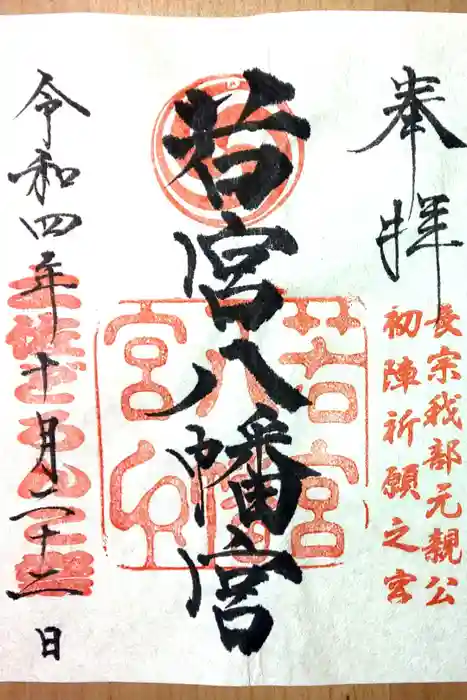 奉拝
長宗我部元親公
初陣祈願之宮
若宮八幡宮
令和四年十月二十二日